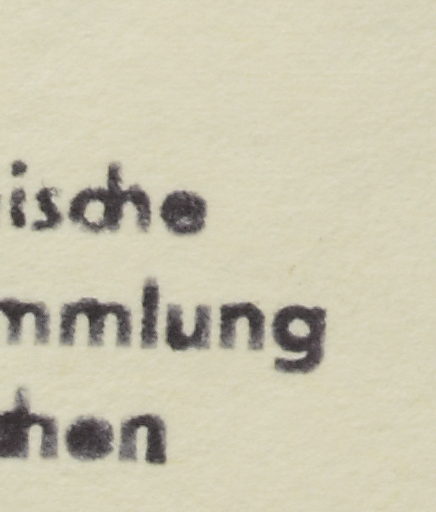 ische
mmlung
chen